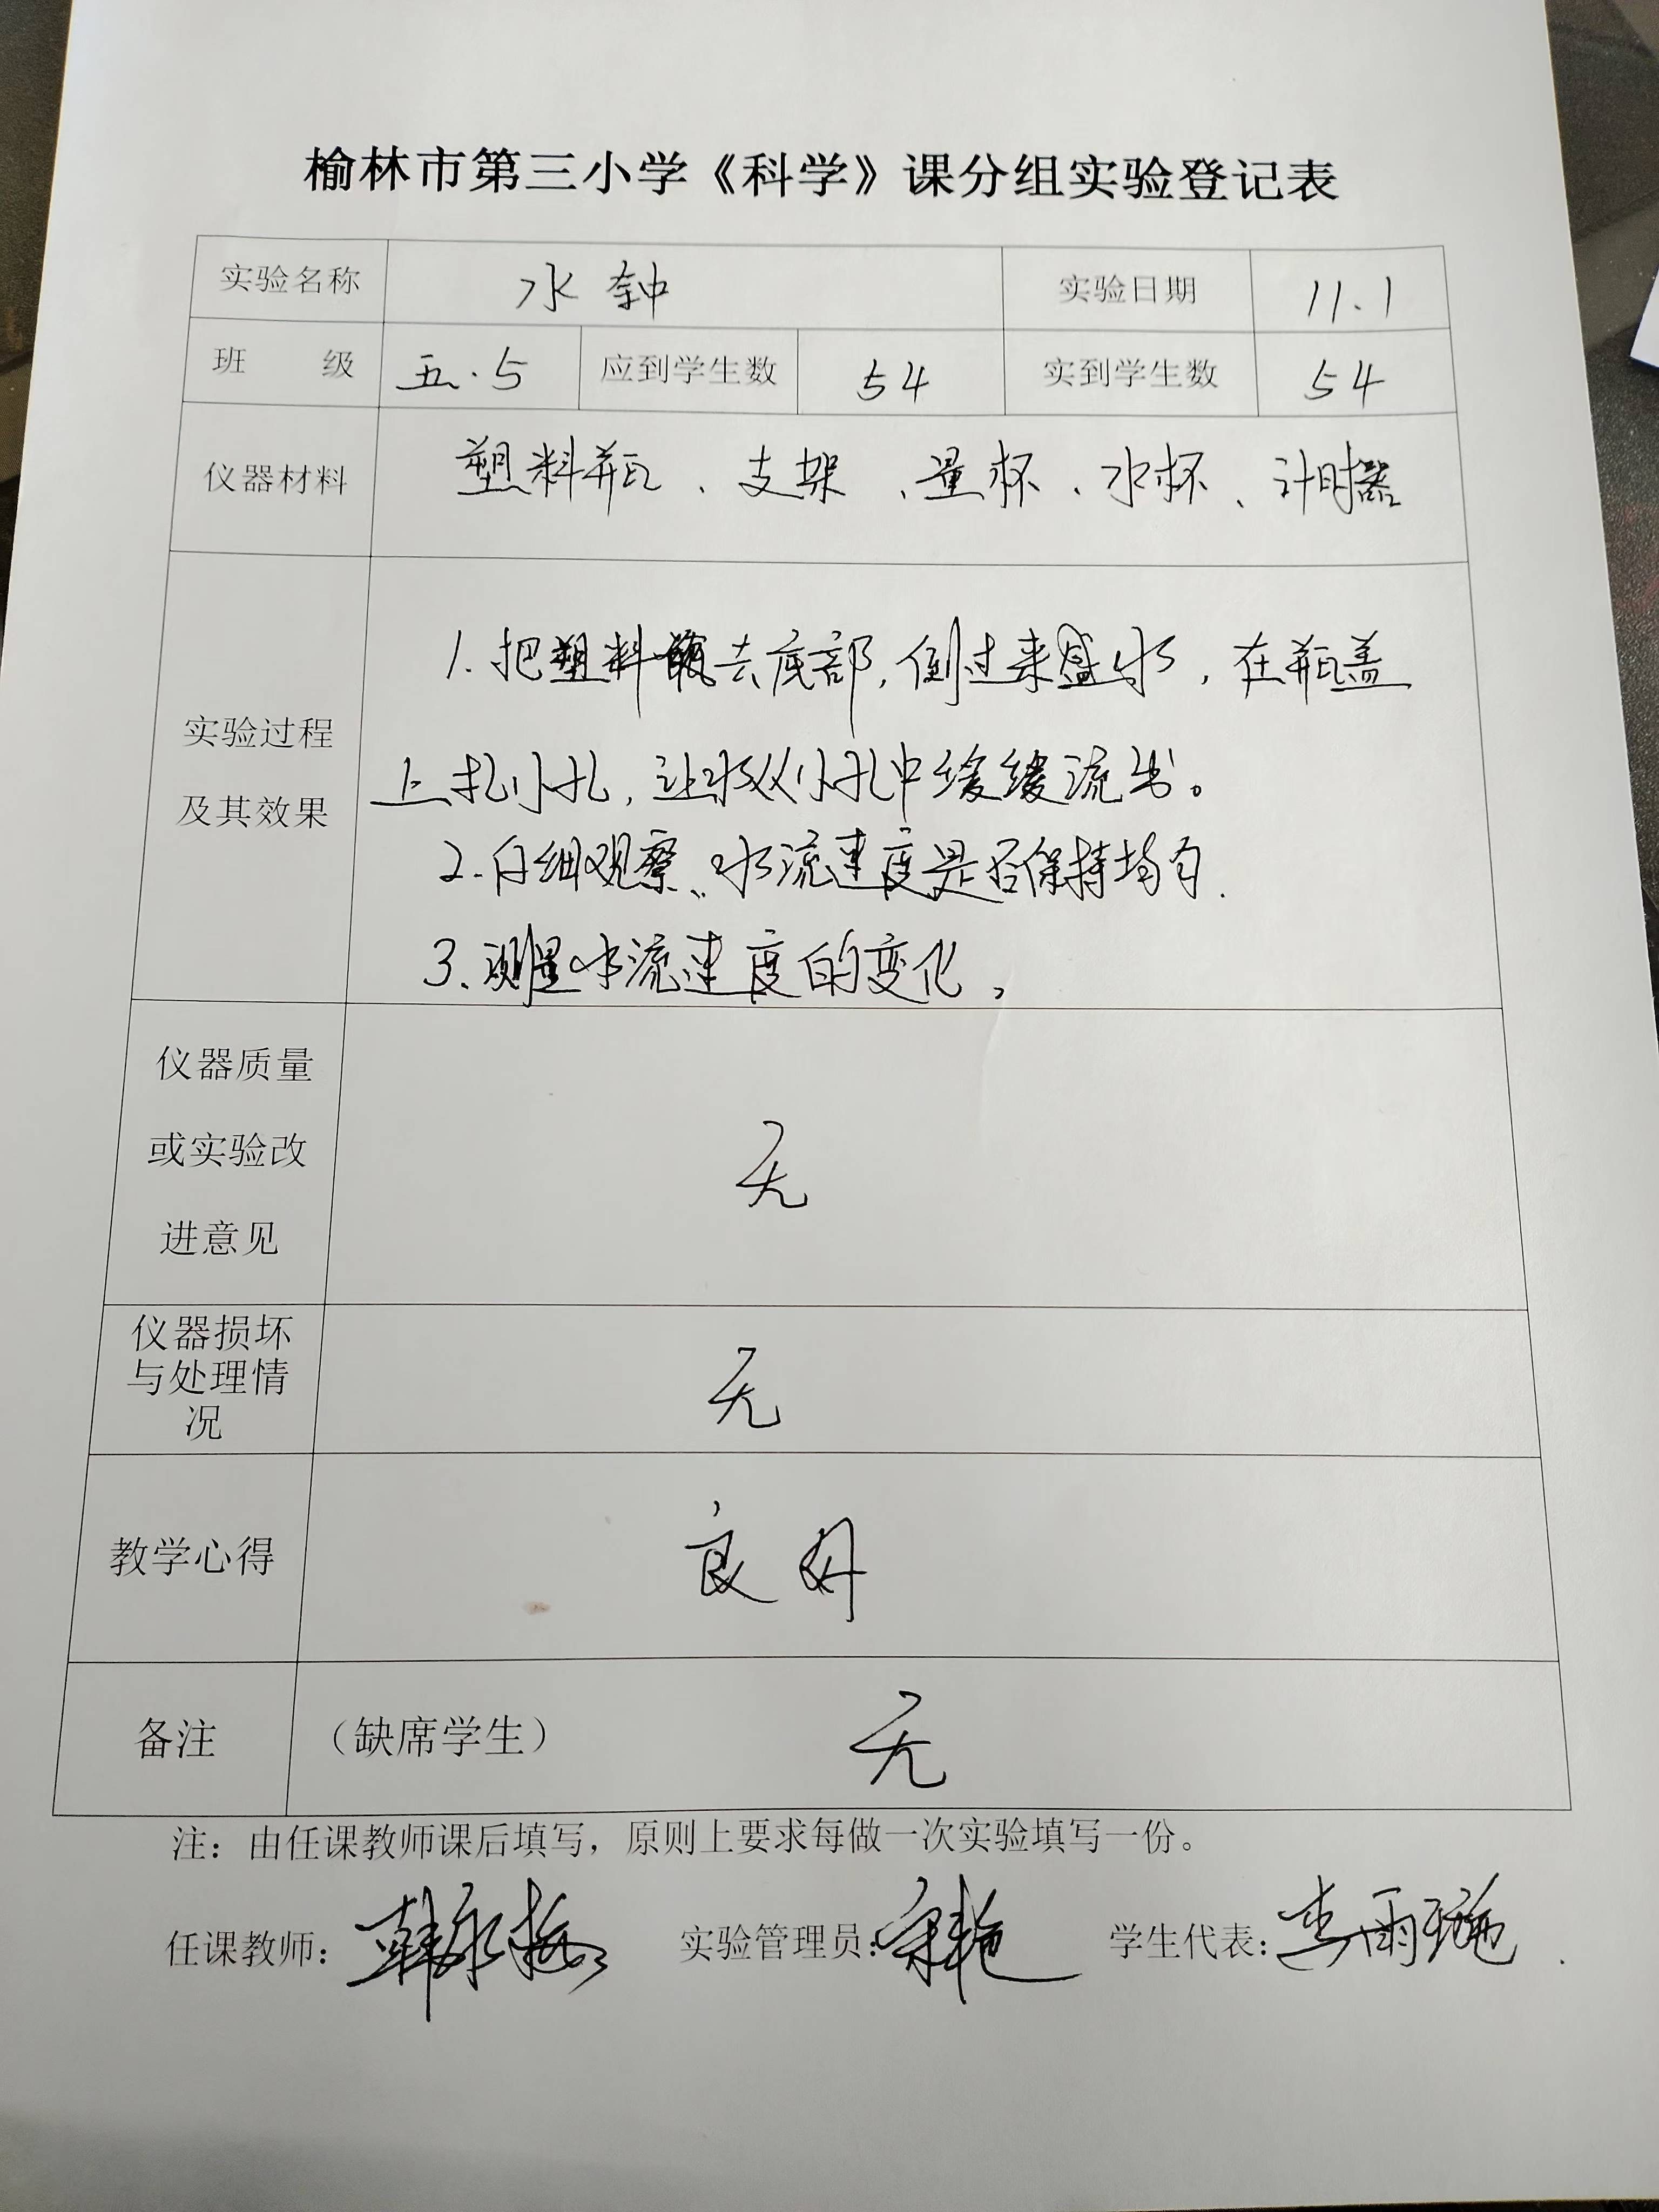 榆林市第三小学《科学》课分组实验登记表
实验名称 水钟 实验日期 11.1
班 级 五.5 应到学生数 54 实到学生数 54
仪器材料 塑料瓶、支架、量杯、水杯、计时器
实验过程
及其效果
1.把塑料瓶去底部,倒过来盛水,在瓶盖
上扎小孔,让水从小孔中缓缓流出。
2.仔细观察、水流速度是否保持均匀.
3.测量水流速度的变化,
仪器质量
或实验改
进意见
无
仪器损坏
与处理情
况
无
教学心得 良好
备注 (缺席学生) 无
注:由任课教师课后填写,原则上要求每做一次实验填写一份。
任课教师: 韩永梅 实验管理员: 学生代表: 李雨璇